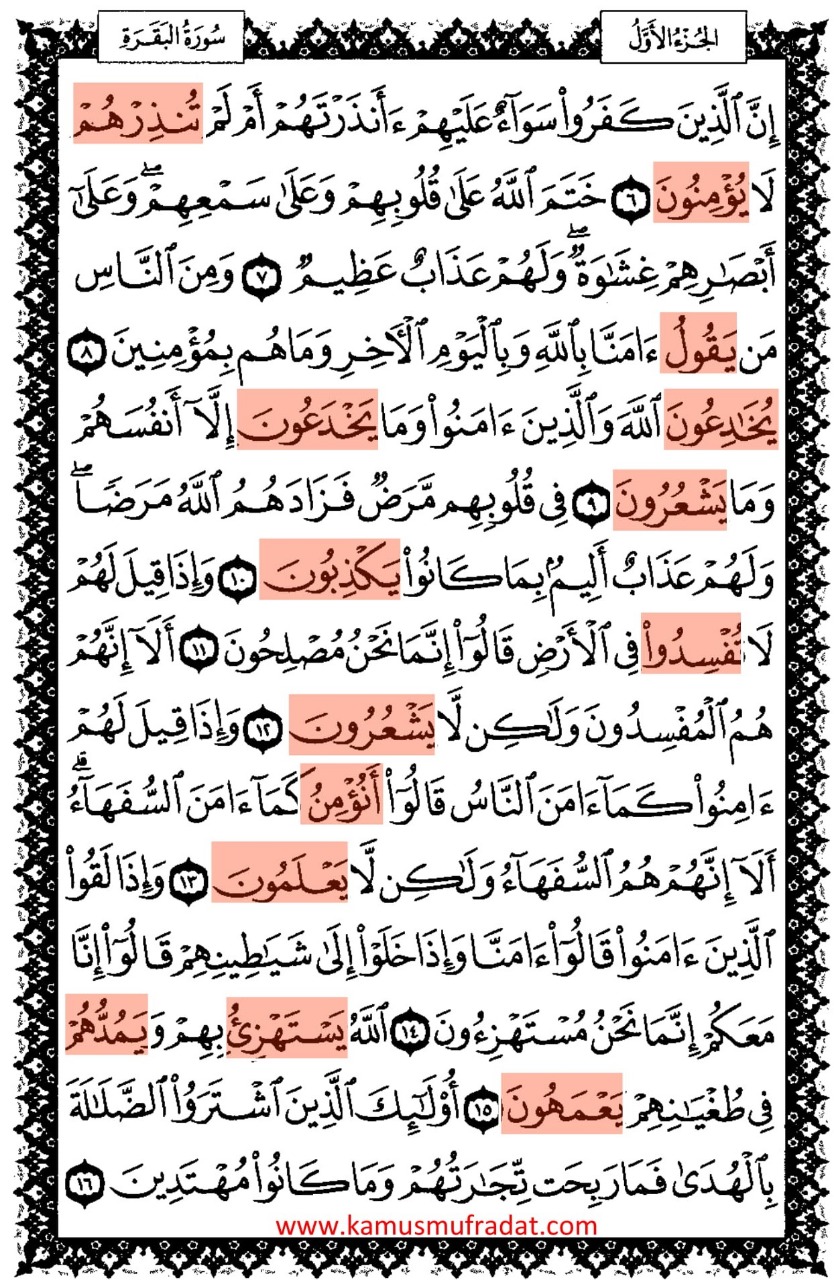 الجُزْءُ الأَوَّلُ
سُورَةُ البَقَرَةِ
إِنَّ ٱلَّذِينَ كَفَرُوا۟ سَوَآءٌ عَلَيْهِمْ ءَأَنذَرْتَهُمْ أَمْ لَمْ تُنذِرْهُمْ
لَا يُؤْمِنُونَ ٦ خَتَمَ ٱللَّهُ عَلَىٰ قُلُوبِهِمْ وَعَلَىٰ سَمْعِهِمْ ۖ وَعَلَىٰٓ
أَبْصَـٰرِهِمْ غِشَـٰوَةٌ ۖ وَلَهُمْ عَذَابٌ عَظِيمٌ ٧ وَمِنَ ٱلنَّاسِ
مَن يَقُولُ ءَامَنَّا بِٱللَّهِ وَبِٱلْيَوْمِ ٱلْـَٔاخِرِ وَمَا هُم بِمُؤْمِنِينَ ٨
يُخَـٰدِعُونَ ٱللَّهَ وَٱلَّذِينَ ءَامَنُوا۟ وَمَا يَخْدَعُونَ إِلَّآ أَنفُسَهُمْ
وَمَا يَشْعُرُونَ ٩ فِى قُلُوبِهِم مَّرَضٌ فَزَادَهُمُ ٱللَّهُ مَرَضًا ۖ
وَلَهُمْ عَذَابٌ أَلِيمٌۢ بِمَا كَانُوا۟ يَكْذِبُونَ ١٠ وَإِذَا قِيلَ لَهُمْ
لَا تُفْسِدُوا۟ فِى ٱلْأَرْضِ قَالُوٓا۟ إِنَّمَا نَحْنُ مُصْلِحُونَ ١١ أَلَآ إِنَّهُمْ
هُمُ ٱلْمُفْسِدُونَ وَلَـٰكِن لَّا يَشْعُرُونَ ١٢ وَإِذَا قِيلَ لَهُمْ
ءَامِنُوا۟ كَمَآ ءَامَنَ ٱلنَّاسُ قَالُوٓا۟ أَنُؤْمِنُ كَمَآ ءَامَنَ ٱلسُّفَهَآءُ ۗ
أَلَآ إِنَّهُمْ هُمُ ٱلسُّفَهَآءُ وَلَـٰكِن لَّا يَعْلَمُونَ ١٣ وَإِذَا لَقُوا۟
ٱلَّذِينَ ءَامَنُوا۟ قَالُوٓا۟ ءَامَنَّا وَإِذَا خَلَوْا۟ إِلَىٰ شَيَـٰطِينِهِمْ قَالُوٓا۟ إِنَّا
مَعَكُمْ إِنَّمَا نَحْنُ مُسْتَهْزِءُونَ ١٤ ٱللَّهُ يَسْتَهْزِئُ بِهِمْ وَيَمُدُّهُمْ
فِى طُغْيَـٰنِهِمْ يَعْمَهُونَ ١٥ أُو۟لَـٰٓئِكَ ٱلَّذِينَ ٱشْتَرَوُا۟ ٱلضَّلَـٰلَةَ
بِٱلْهُدَىٰ فَمَا رَبِحَت تِّجَـٰرَتُهُمْ وَمَا كَانُوا۟ مُهْتَدِينَ ١٦
www.kamusmufradat.com